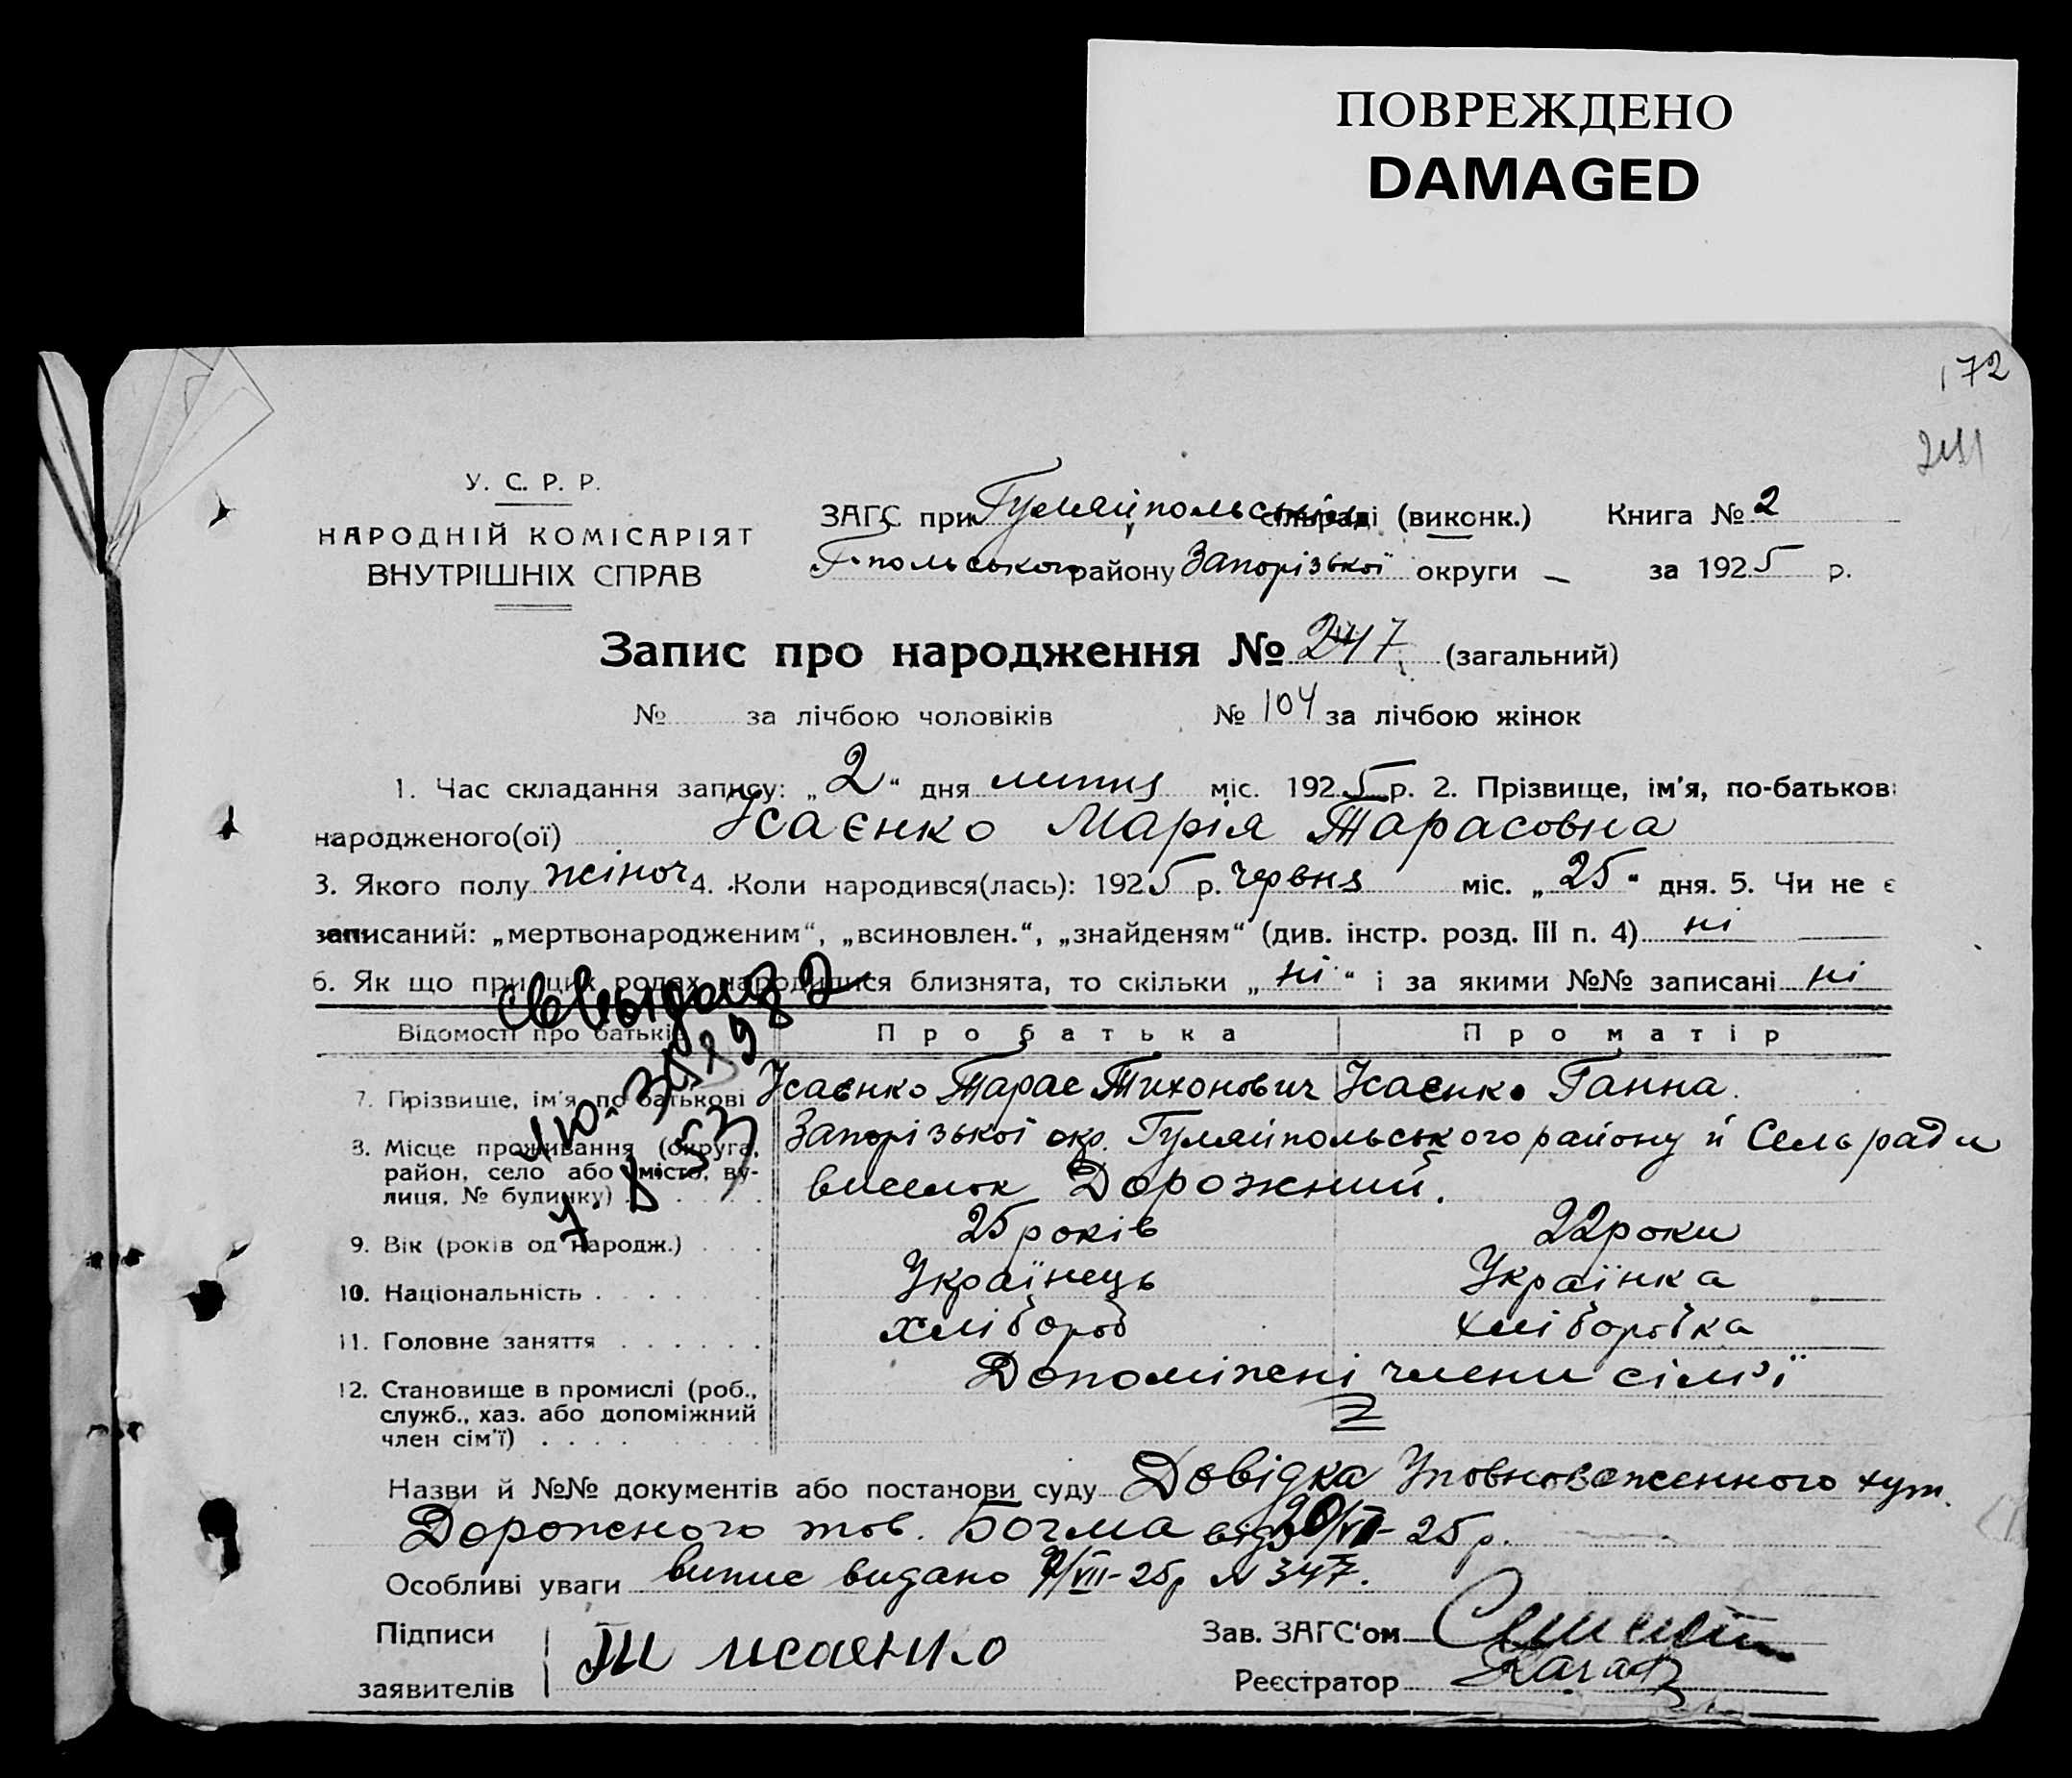 ПОВРЕЖДЕНО
DAMAGED
172
У. С. Р. Р.
НАРОДНІЙ КОМІСАРІЯТ
ВНУТРІШНІХ СПРАВ
ЗАГС при Гуляйпольськім сільраді (виконк.) Книга № 2
Г-польського району Запорізької округи — за 1925 р.
Запис про народження № 247 (загальний)
№ за лічбою чоловіків № 104 за лічбою жінок
1. Час складання запису: „2“ дня липня міс. 1925 р. 2. Прізвище, ім'я, по-батькові
народженого(ої) Ісаєнко Марія Тарасовна
3. Якого полу жіноч 4. Коли народився(лась): 1925 р. червня міс. „25“ дня. 5. Чи не є
записаний: „мертвонародженим“, „всиновлен.“, „знайденям“ (див. інстр. розд. III п. 4) ні
6. Як що при цих родах народилися близнята, то скільки „ні“ і за якими №№ записані ні
Відомості про батьків Про батька Про матір
7. Прізвище, ім'я, по батькові Ісаєнко Тарас Тихонович Ісаєнко Ганна.
8. Місце проживання (округа, район, село або місто, вулиця, № будинку) Запорізької окр. Гуляйпольського району й Сельради
виселок Дорожний.
9. Вік (років од народж.) 25 років 22 роки
10. Національність Українець Українка
11. Головне заняття хлібороб хліборобка
12. Становище в промислі (роб., служб., хаз. або допоміжний член сім'ї) Допоміжні члени сім'ї
Назви й №№ документів або постанови суду Довідка Уповноваженного хут.
Дорожного тов. Бочма від 30/VI-25 р.
Особливі уваги випис видано 2/VII-25р N 347.
Підписи заявителів Т Исаенко
Зав. ЗАГС'ом
Реєстратор